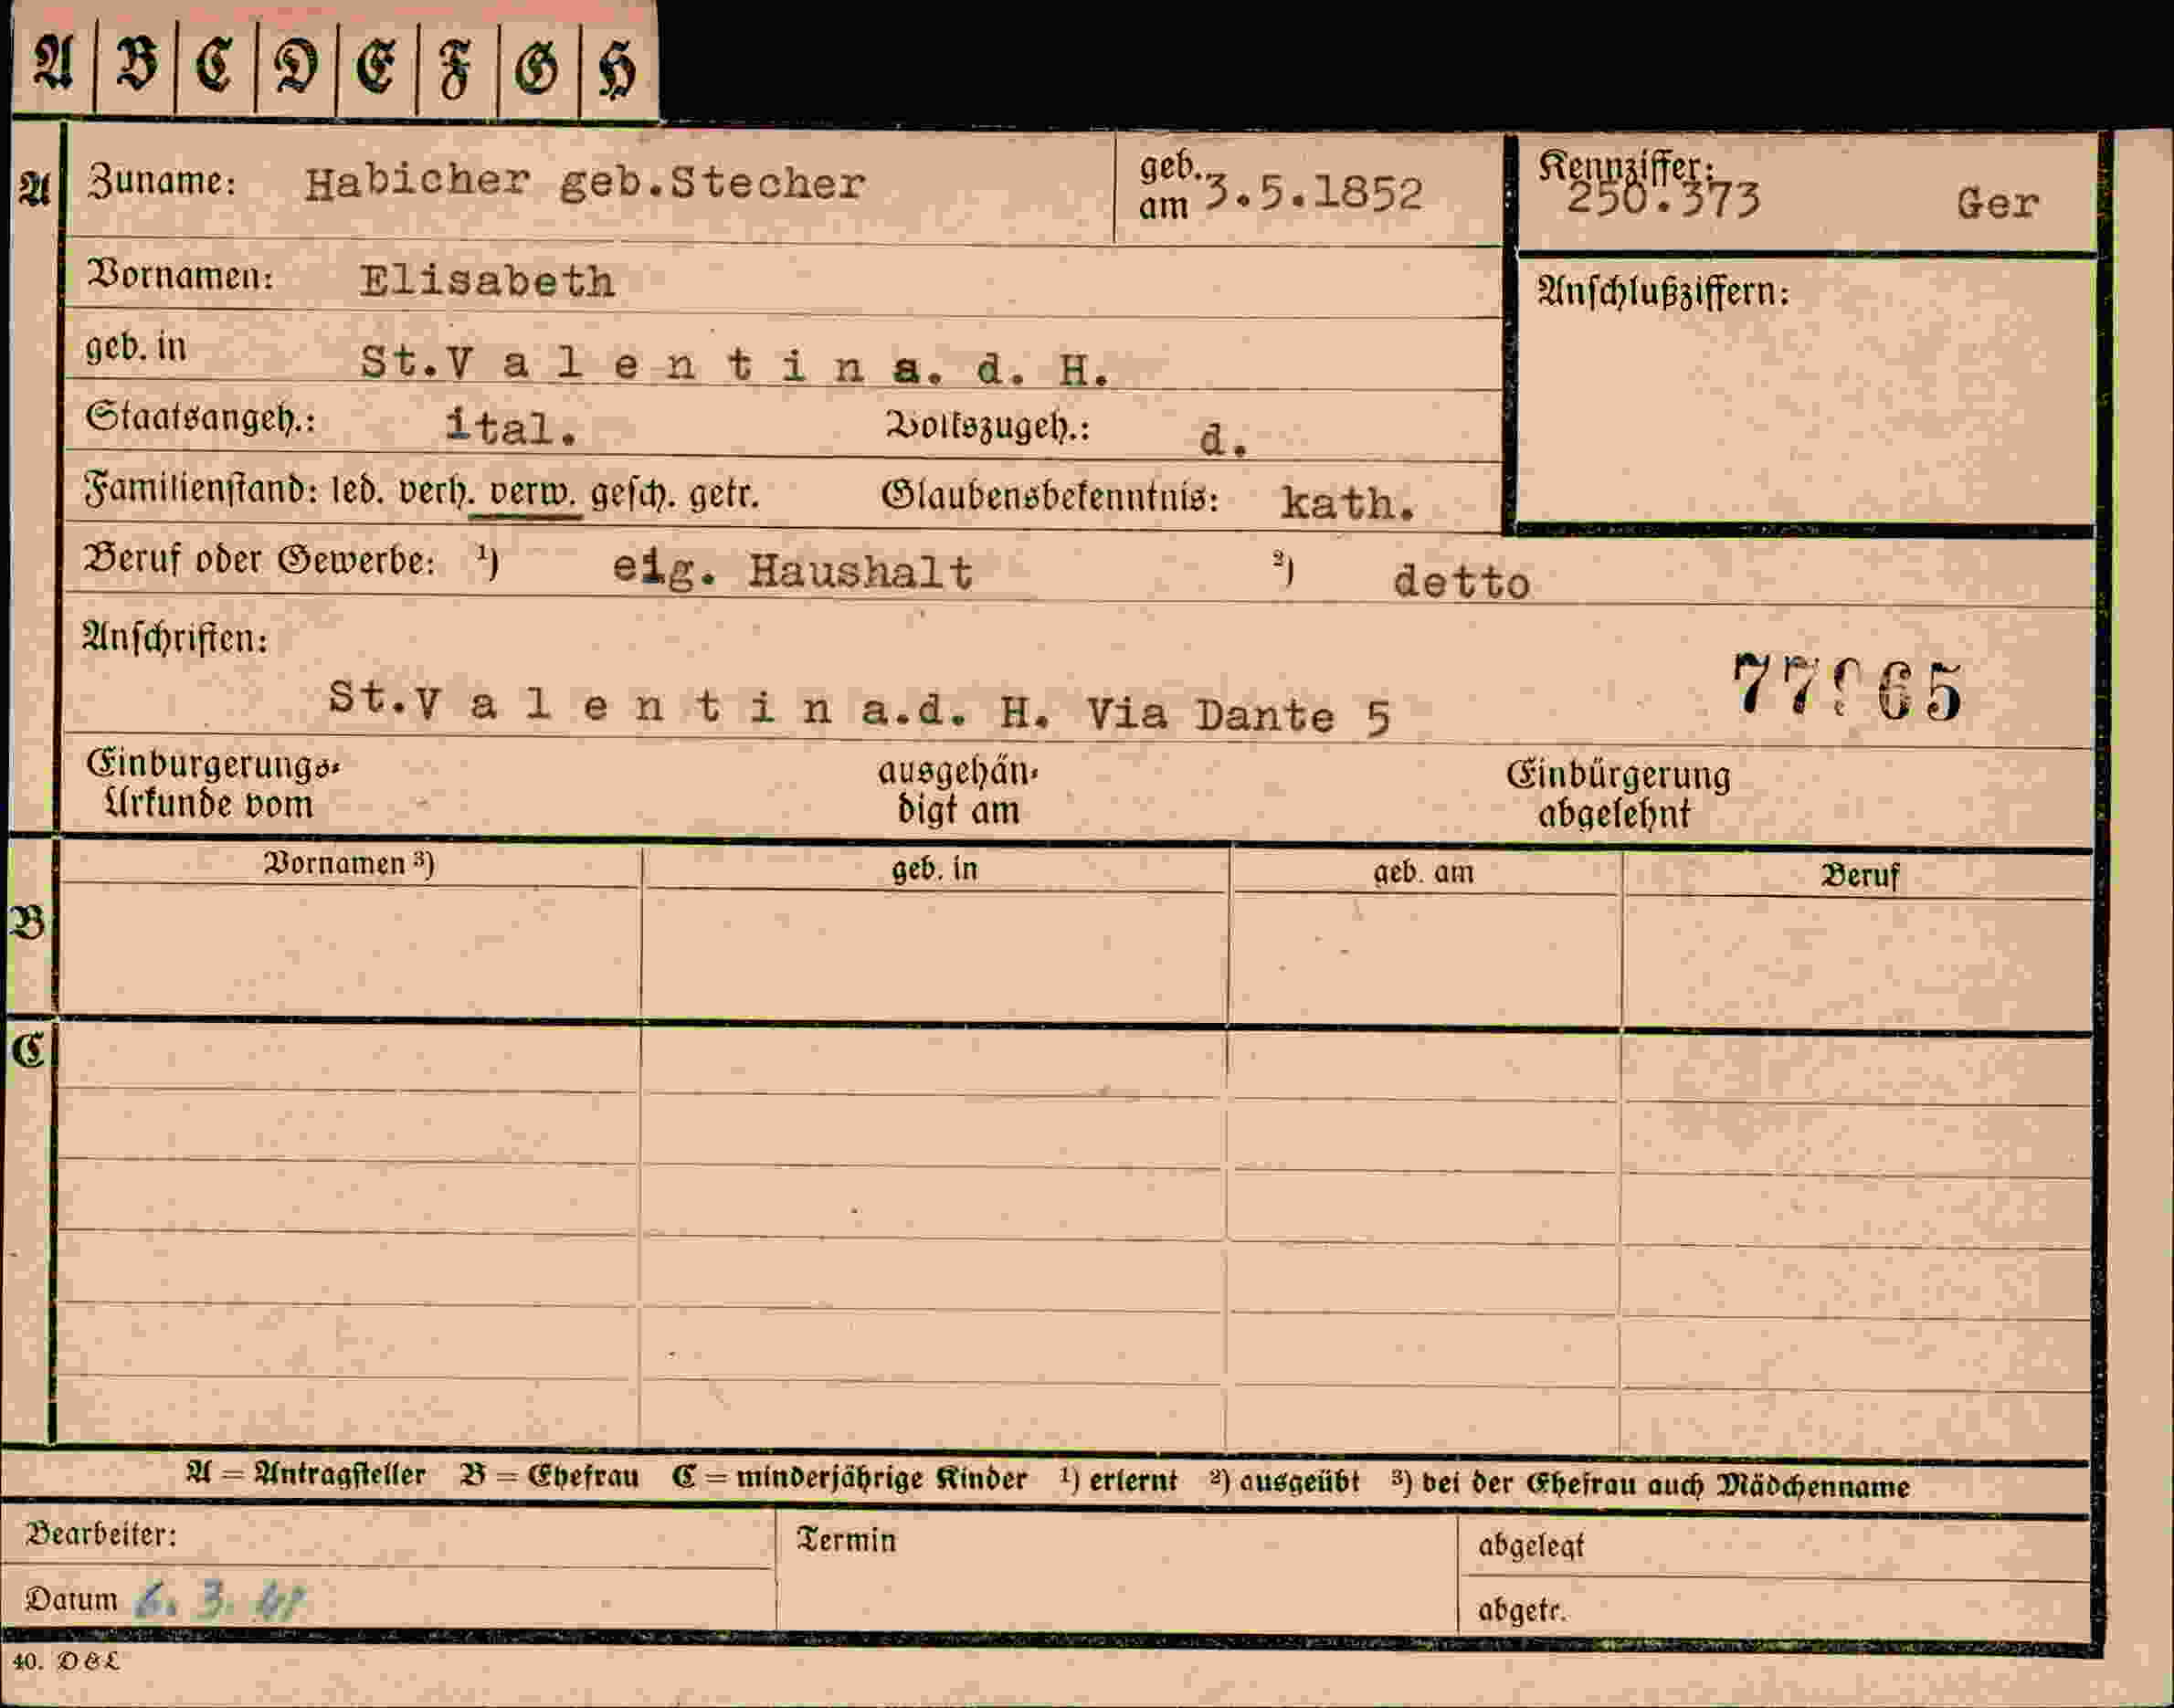 A B C D E F G H
A Zuname: Habicher geb.Stecher geb. am 3.5.1852 Kennziffer: 250.373 Ger
Vornamen: Elisabeth Anschlußziffern:
geb. in St.V a l e n t i n a. d. H.
Staatsangeh.: ital. Volkszugeh.: d.
Familienstand: led. verh. verw. gesch. getr. Glaubensbekenntnis: kath.
Beruf oder Gewerbe: ¹) eig. Haushalt ²) detto
Anschriften:
St.V a l e n t i n a.d. H. Via Dante 5
Einbürgerungs-
Urkunde vom
ausgehän-
digt am
Einbürgerung
abgelehnt
Vornamen ³) geb. in geb. am Beruf
B
C
A = Antragsteller B = Ehefrau C = minderjährige Kinder ¹) erlernt ²) ausgeübt ³) bei der Ehefrau auch Mädchenname
Bearbeiter: Termin abgelegt
Datum 6. 3. abgetr.
40. D&L